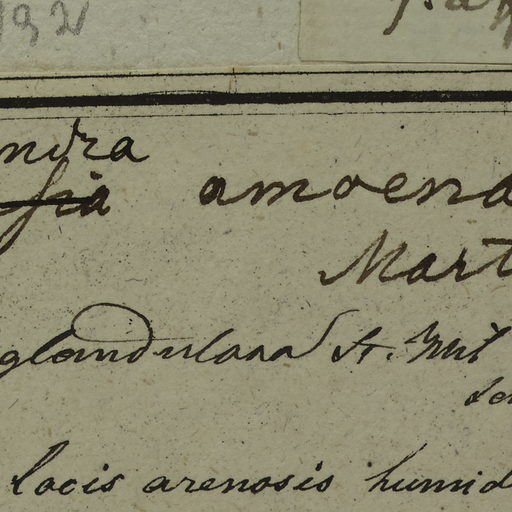 192
ndra
amoena
Mart
glandulosa St. Hil
locis arenosis humid